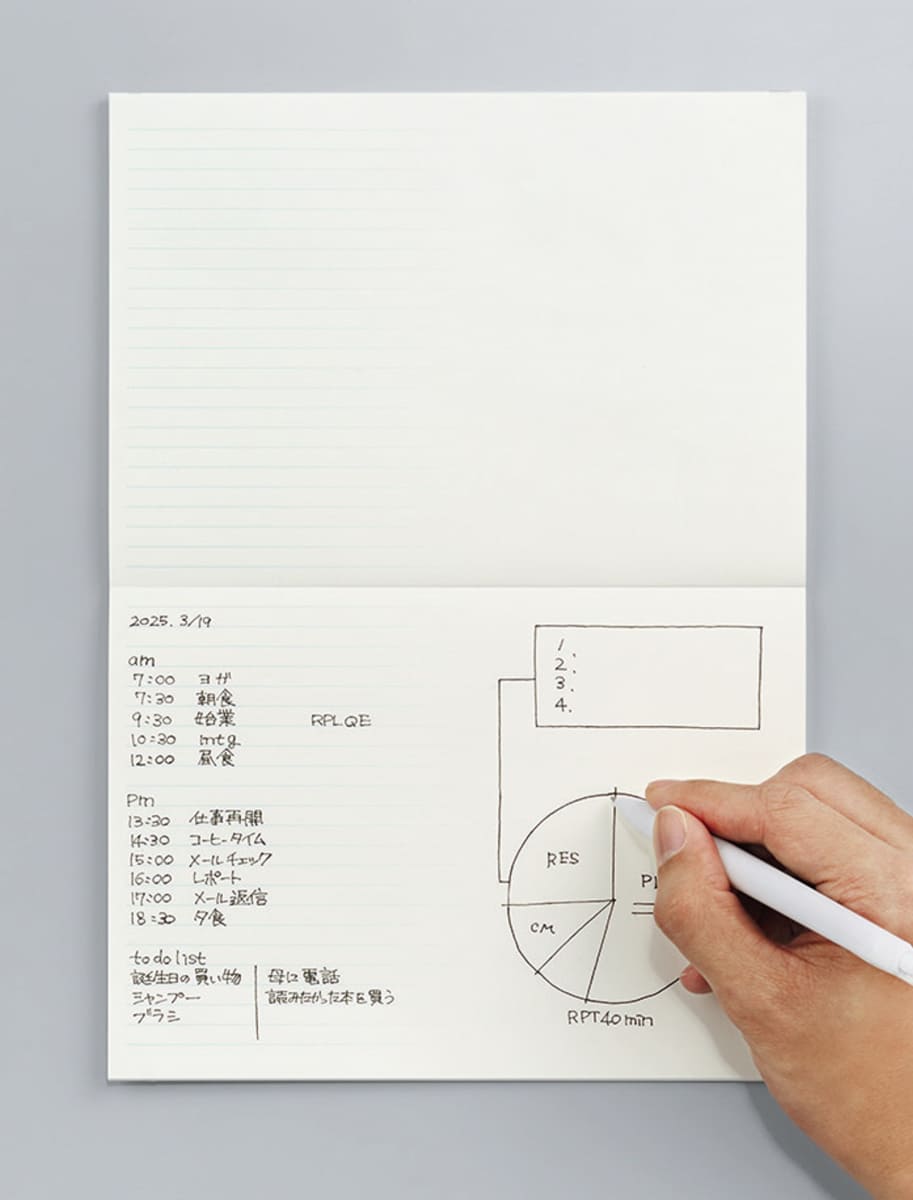 2025. 3/19
am
7:00 ヨガ
7:30 朝食
9:30 始業
10:30 mtg
12:00 昼食
RPLQE
Pm
13:30 仕事再開
14:30 コーヒータイム
15:00 メールチェック
16:00 レポート
17:00 メール返信
18:30 夕食
to do list
誕生日の買い物
シャンプー
ブラシ
母に電話
読みたかった本を買う
1.
2.
3.
4.
RES
CM
RPT40min